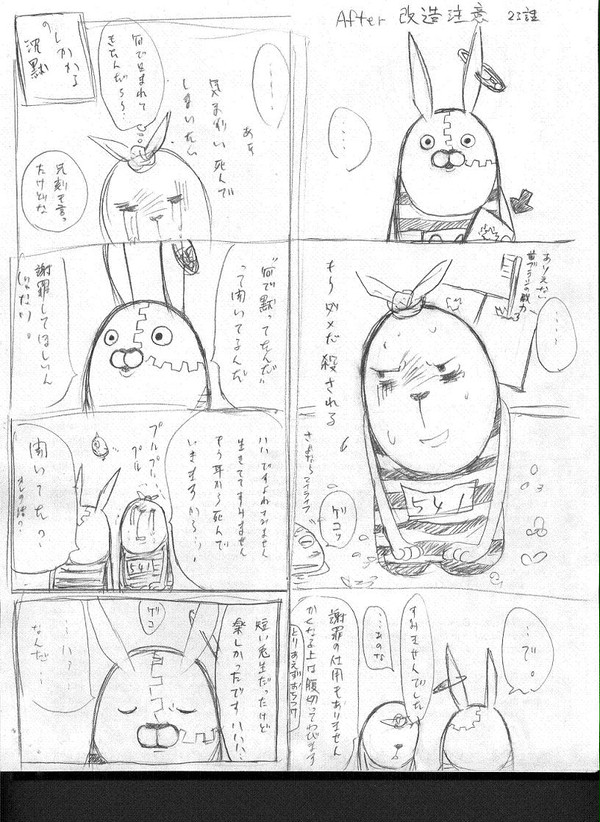 After 改造注意 23話
‥‥
‥‥
ありえない
もうダメだ殺される
さよならマイライフ
ゲコッ
541
‥で。
すみませんでした
謝罪の仕用もありません
かくなる上は腹切ってわびます
‥あのな
とりあえずおちつけ
のしかかる
沈黙
‥‥
あぁ
気まずい死んで
しまいたい
何で生まれて
きたんだろ〜‥
"何で黙ってなんだ"
って聞いてるんだ
謝罪してほしいん
じゃない。
ハハですよねすみません
生きててすみません
もう耳から死んで
いきますから‥
プルプルプル
541
聞いてた?
オレの話?
短い兎生だったけど
楽しかったですハハハ‥
ゲコ
‥ハ?
なんだ‥